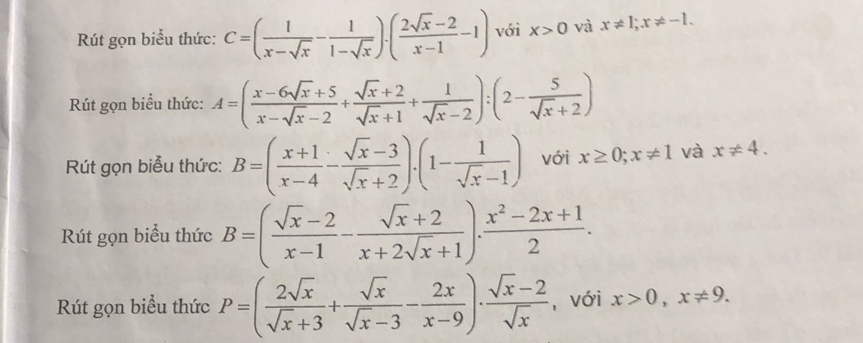 Rút gọn biểu thức: C = (1/(x−√x) − 1/(1−√x)).((2√x−2)/(x−1) − 1) với x>0 và x≠1; x≠−1.
Rút gọn biểu thức: A = ((x−6√x+5)/(x−√x−2) + (√x+2)/(√x+1) + 1/(√x−2)) : (2 − 5/(√x+2))
Rút gọn biểu thức: B = ((x+1)/(x−4) − (√x−3)/(√x+2)).(1 − 1/(√x−1)) với x≥0; x≠1 và x≠4.
Rút gọn biểu thức B = ((√x−2)/(x−1) − (√x+2)/(x+2√x+1)).(x²−2x+1)/2.
Rút gọn biểu thức P = (2√x/(√x+3) + √x/(√x−3) − 2x/(x−9)).(√x−2)/√x, với x>0, x≠9.